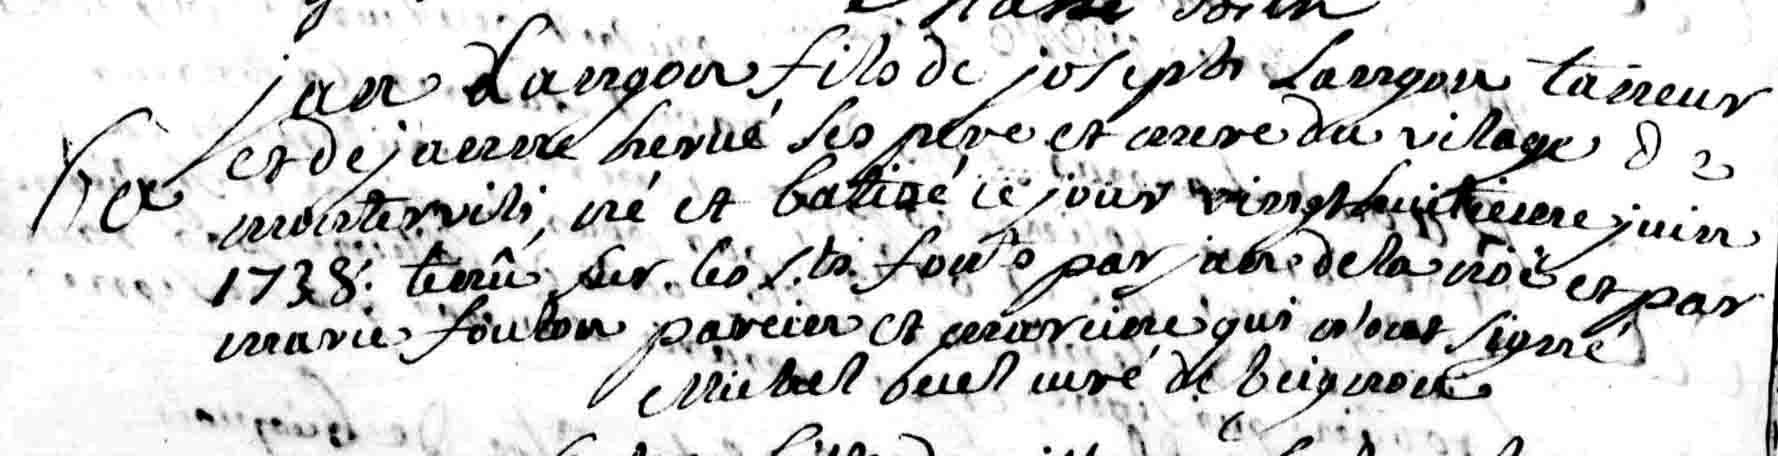 jan Langou fils de joseph Langou taneur
et de jaenne hervé ses pere et mere du vilage de
montervili, né et batisé ce jour vingt huitieme juin
1738. tenû sur les sts. fonts par jan de la noë et par
marie foulon parein et mareine qui n'ont signé
Michel curé de beignon